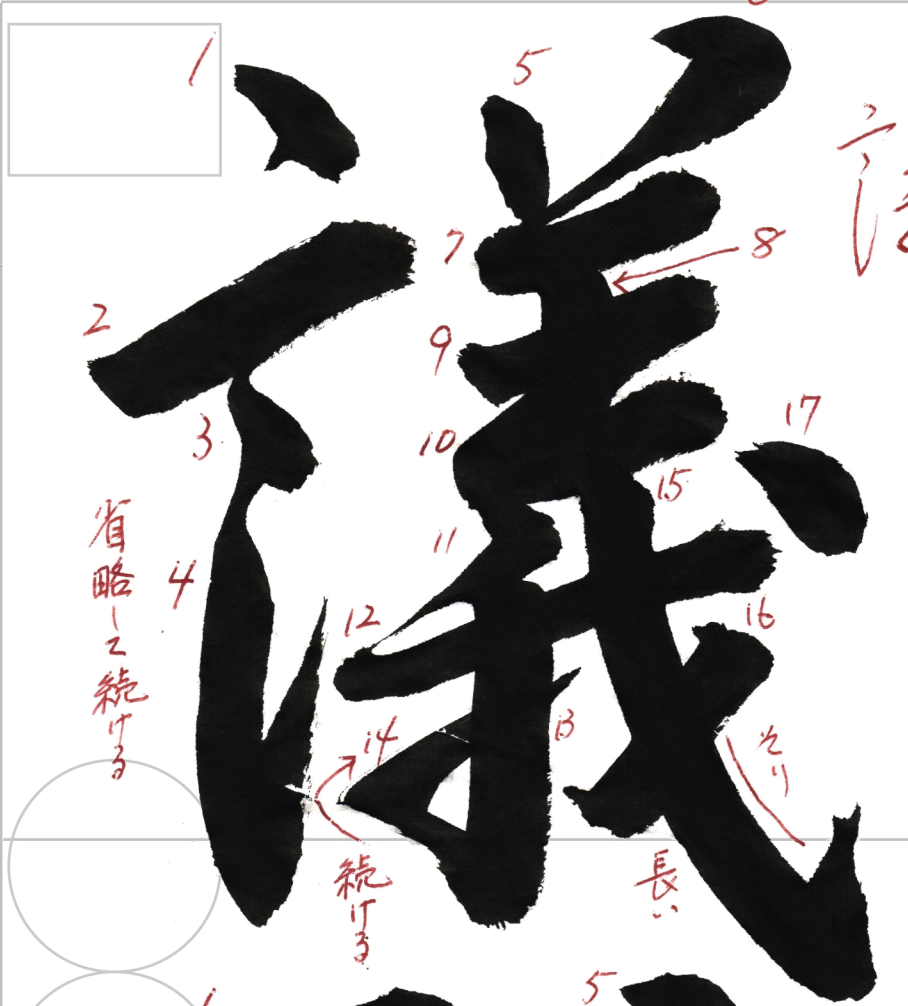 議
1
2
3
4
5
7
8
9
10
11
12
13
14
15
16
17
省略して続ける
続ける
長い
そり
5